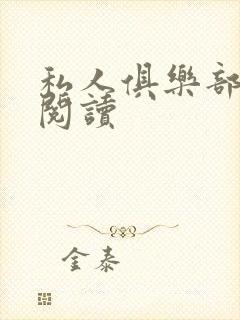 私人俱樂部
閱讀
金泰